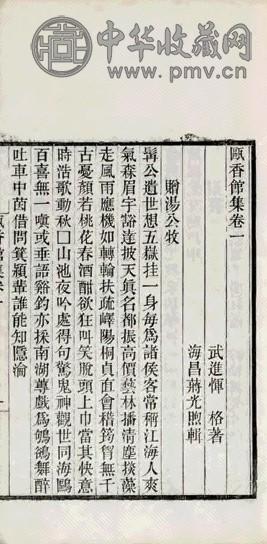 中华收藏网
www.pmv.cn
甌香館集卷一
武進惲 格著
海昌蔣光煦輯
贈湯公牧
髯公遺世想五嶽挂一身每為諸侯客常稱江海人爽
氣森眉宇豁達披天眞名都振高價藝林播清塵掞藻
走風雨應機如轉輪扶疏嶧陽桐貞直會稽筠胷無千
古憂顏若桃花春酒酣欲狂叫笑脫頭上巾當其快意
時浩歌動秋囗山池夜吟處得句驚鬼神觀世同海鷗
百喜無一嗔或垂語谿釣亦採南湖蓴戲為鴝鵒舞醉
吐車中茵借問箕潁輩誰能知隱淪